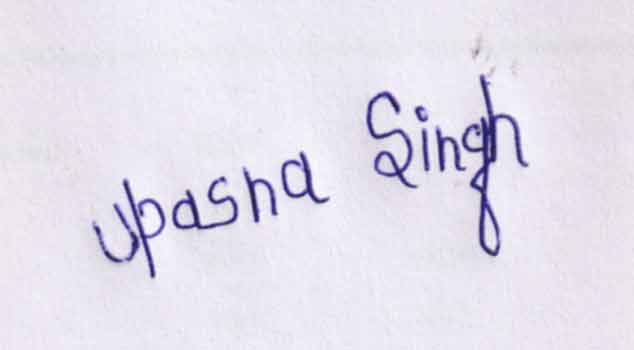 Upasna Singh